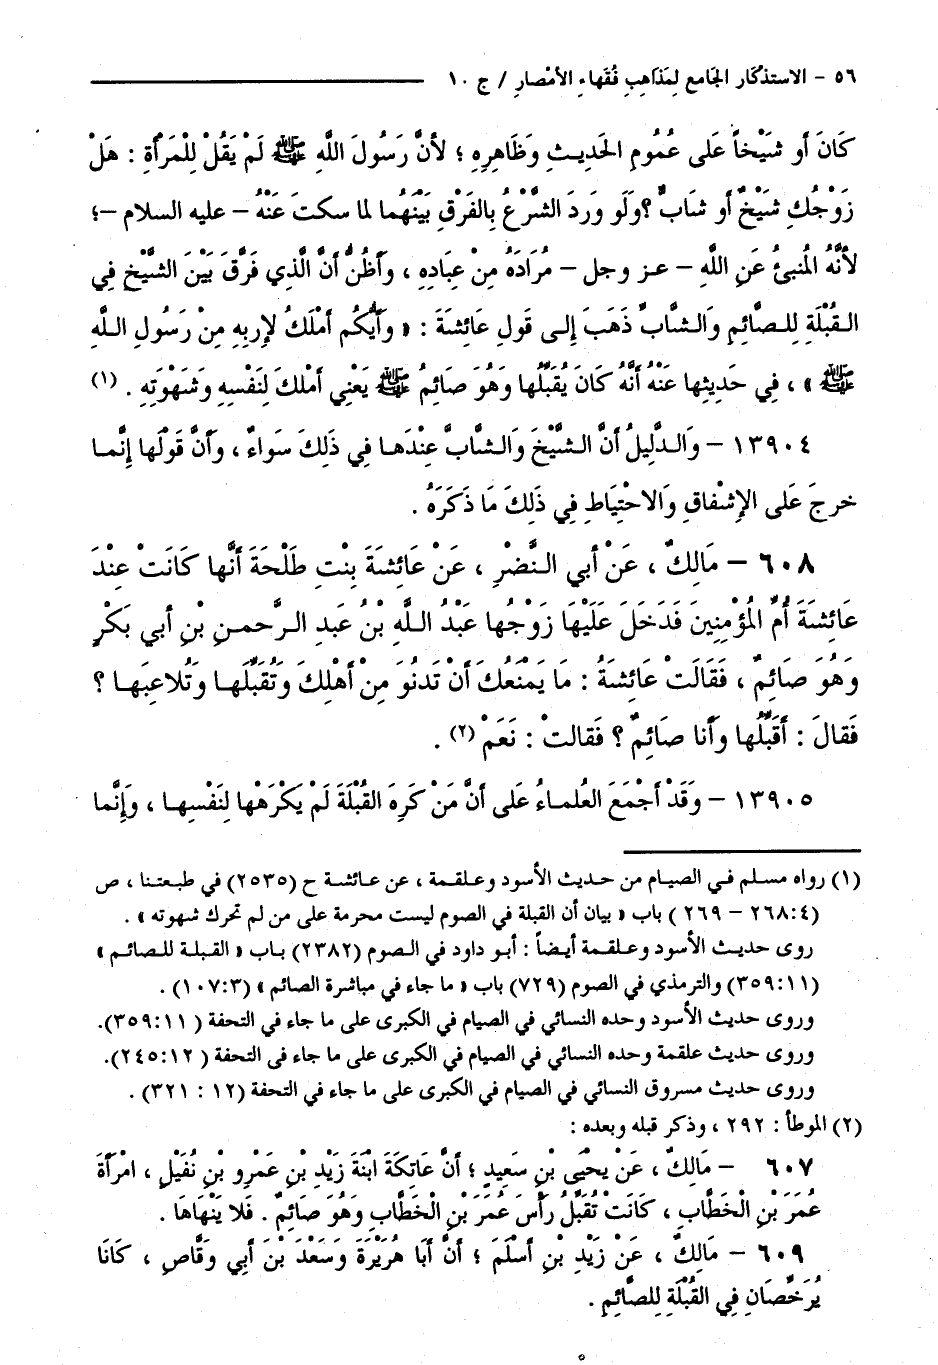 ٥٦ - الاستذْكار الجَامع لِمَذَاهِبِ فُقَهاءِ الأمْصارِ / ج ١٠
كَانَ أو شَيْخاً عَلى عُمُومِ الحَديثِ وَظَاهِرِهِ ؛ لأنَّ رَسُولَ اللَّهِ ﷺ لَمْ يَقُلْ لِلْمَرْأةِ : هَلْ
زَوْجُكِ شَيْخٌ أو شَابٌّ ؟ولَو وَرَدَ الشَّرْعُ بِالفَرْقِ بَيْنَهُما لما سكتَ عَنْهُ – عليه السلام –؛
لأنَّهُ المُنبئُ عَنِ اللَّهِ – عز وجل – مُرَادَهُ مِنْ عِبَادِهِ ، وَأظُنُّ أنَّ الَّذِي فَرَّقَ بَيْنَ الشَّيْخِ فِي
القُبْلَةِ لِلصَّائِمِ وَالشَّابِّ ذَهَبَ إلى قَولِ عَائِشَةَ : « وَأيُّكُم أمْلَكُ لإربِهِ مِنْ رَسُولِ اللَّهِ
ﷺ » ، فِي حَدِيثِها عَنْهُ أنَّهُ كَانَ يُقَبِّلُها وَهُوَ صَائِمٌ ﷺ يَعْنِي أمْلكَ لِنَفْسِهِ وَشَهْوَتِهِ . (١)
١٣٩٠٤ – وَالدَّلِيلُ أنَّ الشَّيْخَ وَالشَّابَّ عِنْدَها فِي ذَلِكَ سَواءٌ ، وَأنَّ قَوْلَها إنَّما
خرجَ عَلَى الإشْفاقِ وَالاحْتِيَاطِ فِي ذَلِكَ مَا ذَكَرَهُ .
٦٠٨ – مَالِكٌ ، عَنْ أبي النَّضْرِ ، عَنْ عَائِشَةَ بِنْتِ طَلْحَةَ أنَّها كَانَتْ عِنْدَ
عَائِشَةَ أُمِّ المُؤْمِنِينَ فَدَخَلَ عَلَيْهَا زَوْجُها عَبْدُ اللَّهِ بْنُ عَبدِ الرَّحمنِ بْنِ أبي بَكْرٍ
وَهُوَ صَائِمٌ ، فَقَالَتْ عَائِشَةُ : مَا يَمْنَعُكَ أنْ تَدنُوَ مِنْ أهْلِكَ وَتُقَبِّلَها وَتُلاعِبَها ؟
فَقالَ : أقَبِّلُها وَأنا صَائِمٌ ؟ فَقالتْ : نَعَمْ (٢) .
١٣٩٠٥ – وَقَدْ أجْمَعَ العُلماءُ عَلى أنَّ مَنْ كَرِهَ القُبْلَةَ لَمْ يَكْرَهْها لِنَفْسِها ، وَإنَّما
(١) رواه مسلم في الصيام من حديث الأسود وعلقمة ، عن عائشة ح (٢٥٣٥) في طبعتنا ، ص
(٢٦٨:٤ – ٢٦٩ ) باب « بيان أن القبلة في الصوم ليست محرمة على من لم تحرك شهوته » .
روى حديث الأسود وعلقمة أيضاً : أبو داود في الصوم (٢٣٨٢) باب « القبلة للصائم »
(٣٥٩:١١) والترمذي في الصوم (٧٢٩) باب « ما جاء في مباشرة الصائم » (١٠٧:٣) .
وروى حديث الأسود وحده النسائي في الصيام في الكبرى على ما جاء في التحفة ( ٣٥٩:١١).
وروى حديث علقمة وحده النسائي في الصيام في الكبرى على ما جاء في التحفة ( ٢٤٥:١٢).
وروى حديث مسروق النسائي في الصيام في الكبرى على ما جاء في التحفة (١٢ : ٣٢١) .
(٢) الموطأ : ٢٩٢ ، وذكر قبله وبعده :
٦٠٧ – مَالِكٌ ، عَنْ يَحْيَى بْنِ سَعِيدٍ ؛ أنَّ عَاتِكَةَ ابْنَةَ زَيْدِ بْنِ عَمْرِو بْنِ نُفَيْلٍ ، امْرأةَ
عُمَرَ بْنِ الْخَطَّابِ ، كَانَتْ تُقَبِّلُ رَأْسَ عُمَرَ بْنِ الْخَطَّابِ وَهُوَ صَائِمٌ . فَلا يَنْهَاهَا .
٦٠٩ – مَالِكٌ ، عَنْ زَيْدِ بْنِ أسْلَمَ ؛ أنَّ أبَا هُرَيْرَةَ وَسَعْدَ بْنَ أبِي وَقَّاصٍ ، كَانَا
يُرَخِّصَانِ فِي القُبْلَةِ لِلصَّائِمِ .